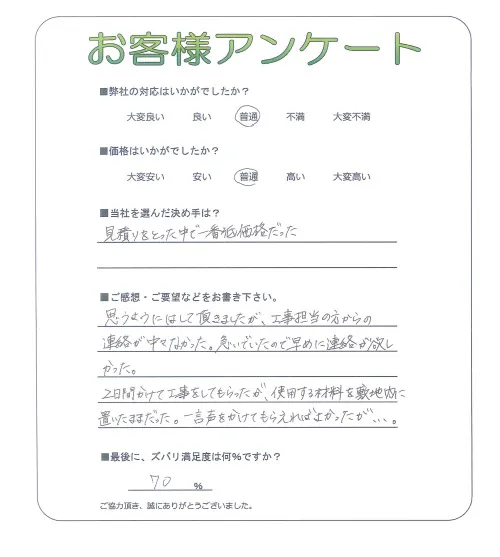 お客様アンケート
■弊社の対応はいかがでしたか？
大変良い 良い 普通 不満 大変不満
■価格はいかがでしたか？
大変安い 安い 普通 高い 大変高い
■当社を選んだ決め手は？
見積りをとった中で一番低価格だった
■ご感想・ご要望などをお書き下さい。
思うようにはして頂きましたが、工事担当の方からの
連絡が中々なかった。急いでいたので早めに連絡が欲し
かった。
2日間かけて工事をしてもらったが、使用する材料を敷地内に
置いたままだった。一言声をかけてもらえればよかったが、…。
■最後に、ズバリ満足度は何%ですか？
70 %
ご協力頂き、誠にありがとうございました。